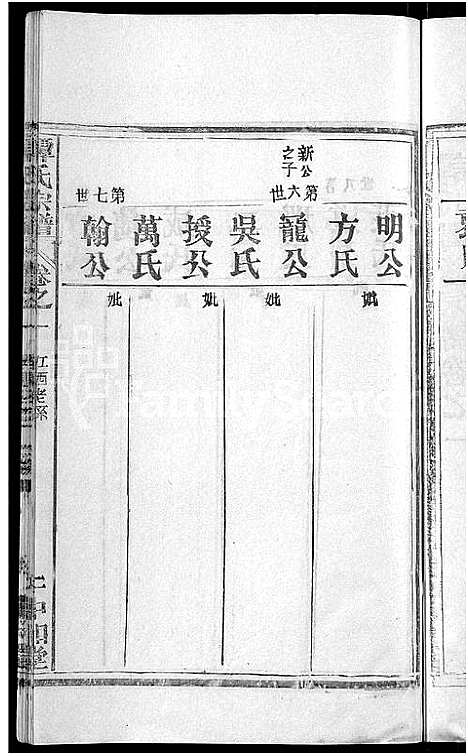 明公
妣
方氏
新公之子
第六世
龍公
妣
吳氏
授公
妣
萬氏
第七世
翰公
妣
譚氏宗譜
卷之一
江西老系